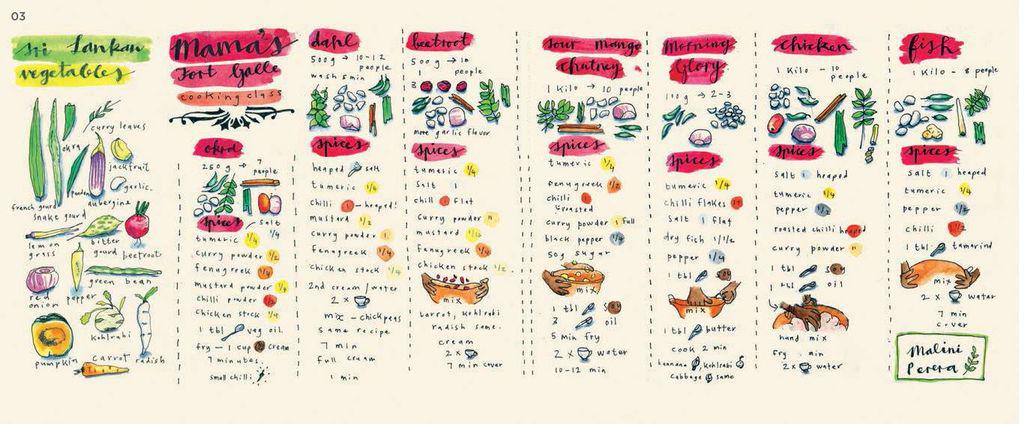 03
Sri Lankan
vegetables
curry leaves
okra
jackfruit
garlic.
pandan
aubergine
french gourd
snake gourd
lemon
grass
bitter
gourd
beetroot
green bean
red
onion
pepper
kohlrabi
pumpkin
carrot
radish
Mama's
Fort Galle
cooking class
okra
250 g → 7
people
spices
salt
tumaric 1/4
curry powder 1/2
fenugreek 1/4
mustard powder 1/4
chilli powder
chicken stock 1/4
1 tbl veg oil
fry - 1 cup cream
7 minutes.
small chilli
dahl
500g → 10-12
people
wash 5 min
spices
heaped salt
tumeric 1/4
chilli 1 - heaped!
mustard 1/2
curry powder 1
fenugreek 1/4
chicken stock 1/4
2nd cream/water
2 x
mix - chickpeas
same recipe
7 min
full cream
1 min
beetroot
500 g → 10
people
1
3
more garlic flavor
spices
tumeric 1/4
salt 1
chilli 1 flat
curry powder
mustard 1/2
fenugreek 1/4
chicken stock 1/2
mix
carrot, kohlrabi
radish same.
cream
2 x
7 min cover
sour mango
chutney
1 kilo → 10 people
spices
tumeric 1/4
fenugreek 1/2
chilli 1
roasted
curry powder 1 full
black pepper 1/4
50g sugar
mix
1 tbl
3 oil
5 min fry
2 x water
10-12 min
Morning
Glory
110g → 2-3
spices
tumeric 1/4
chilli flakes
salt 1 flat
dry fish 1 1/2
pepper 1/4
1 tbl
mix
1 tbl butter
cook 2 min
banana, kohlrabi
cabbage same
chicken
1 kilo - 10
people
spices
salt 1 heaped
tumeric 1/4
pepper 1/2
roasted chilli heaped
curry powder
1 tbl
1 tbl oil
hand mix
fry min
2x water
fish
1 kilo - 8 people
spices
salt 1 heaped
tumeric 1/4
pepper 1/2
chilli 1/2
1 tbl tamarind
mix
2 x water
7 min
cover
Malini
Perera